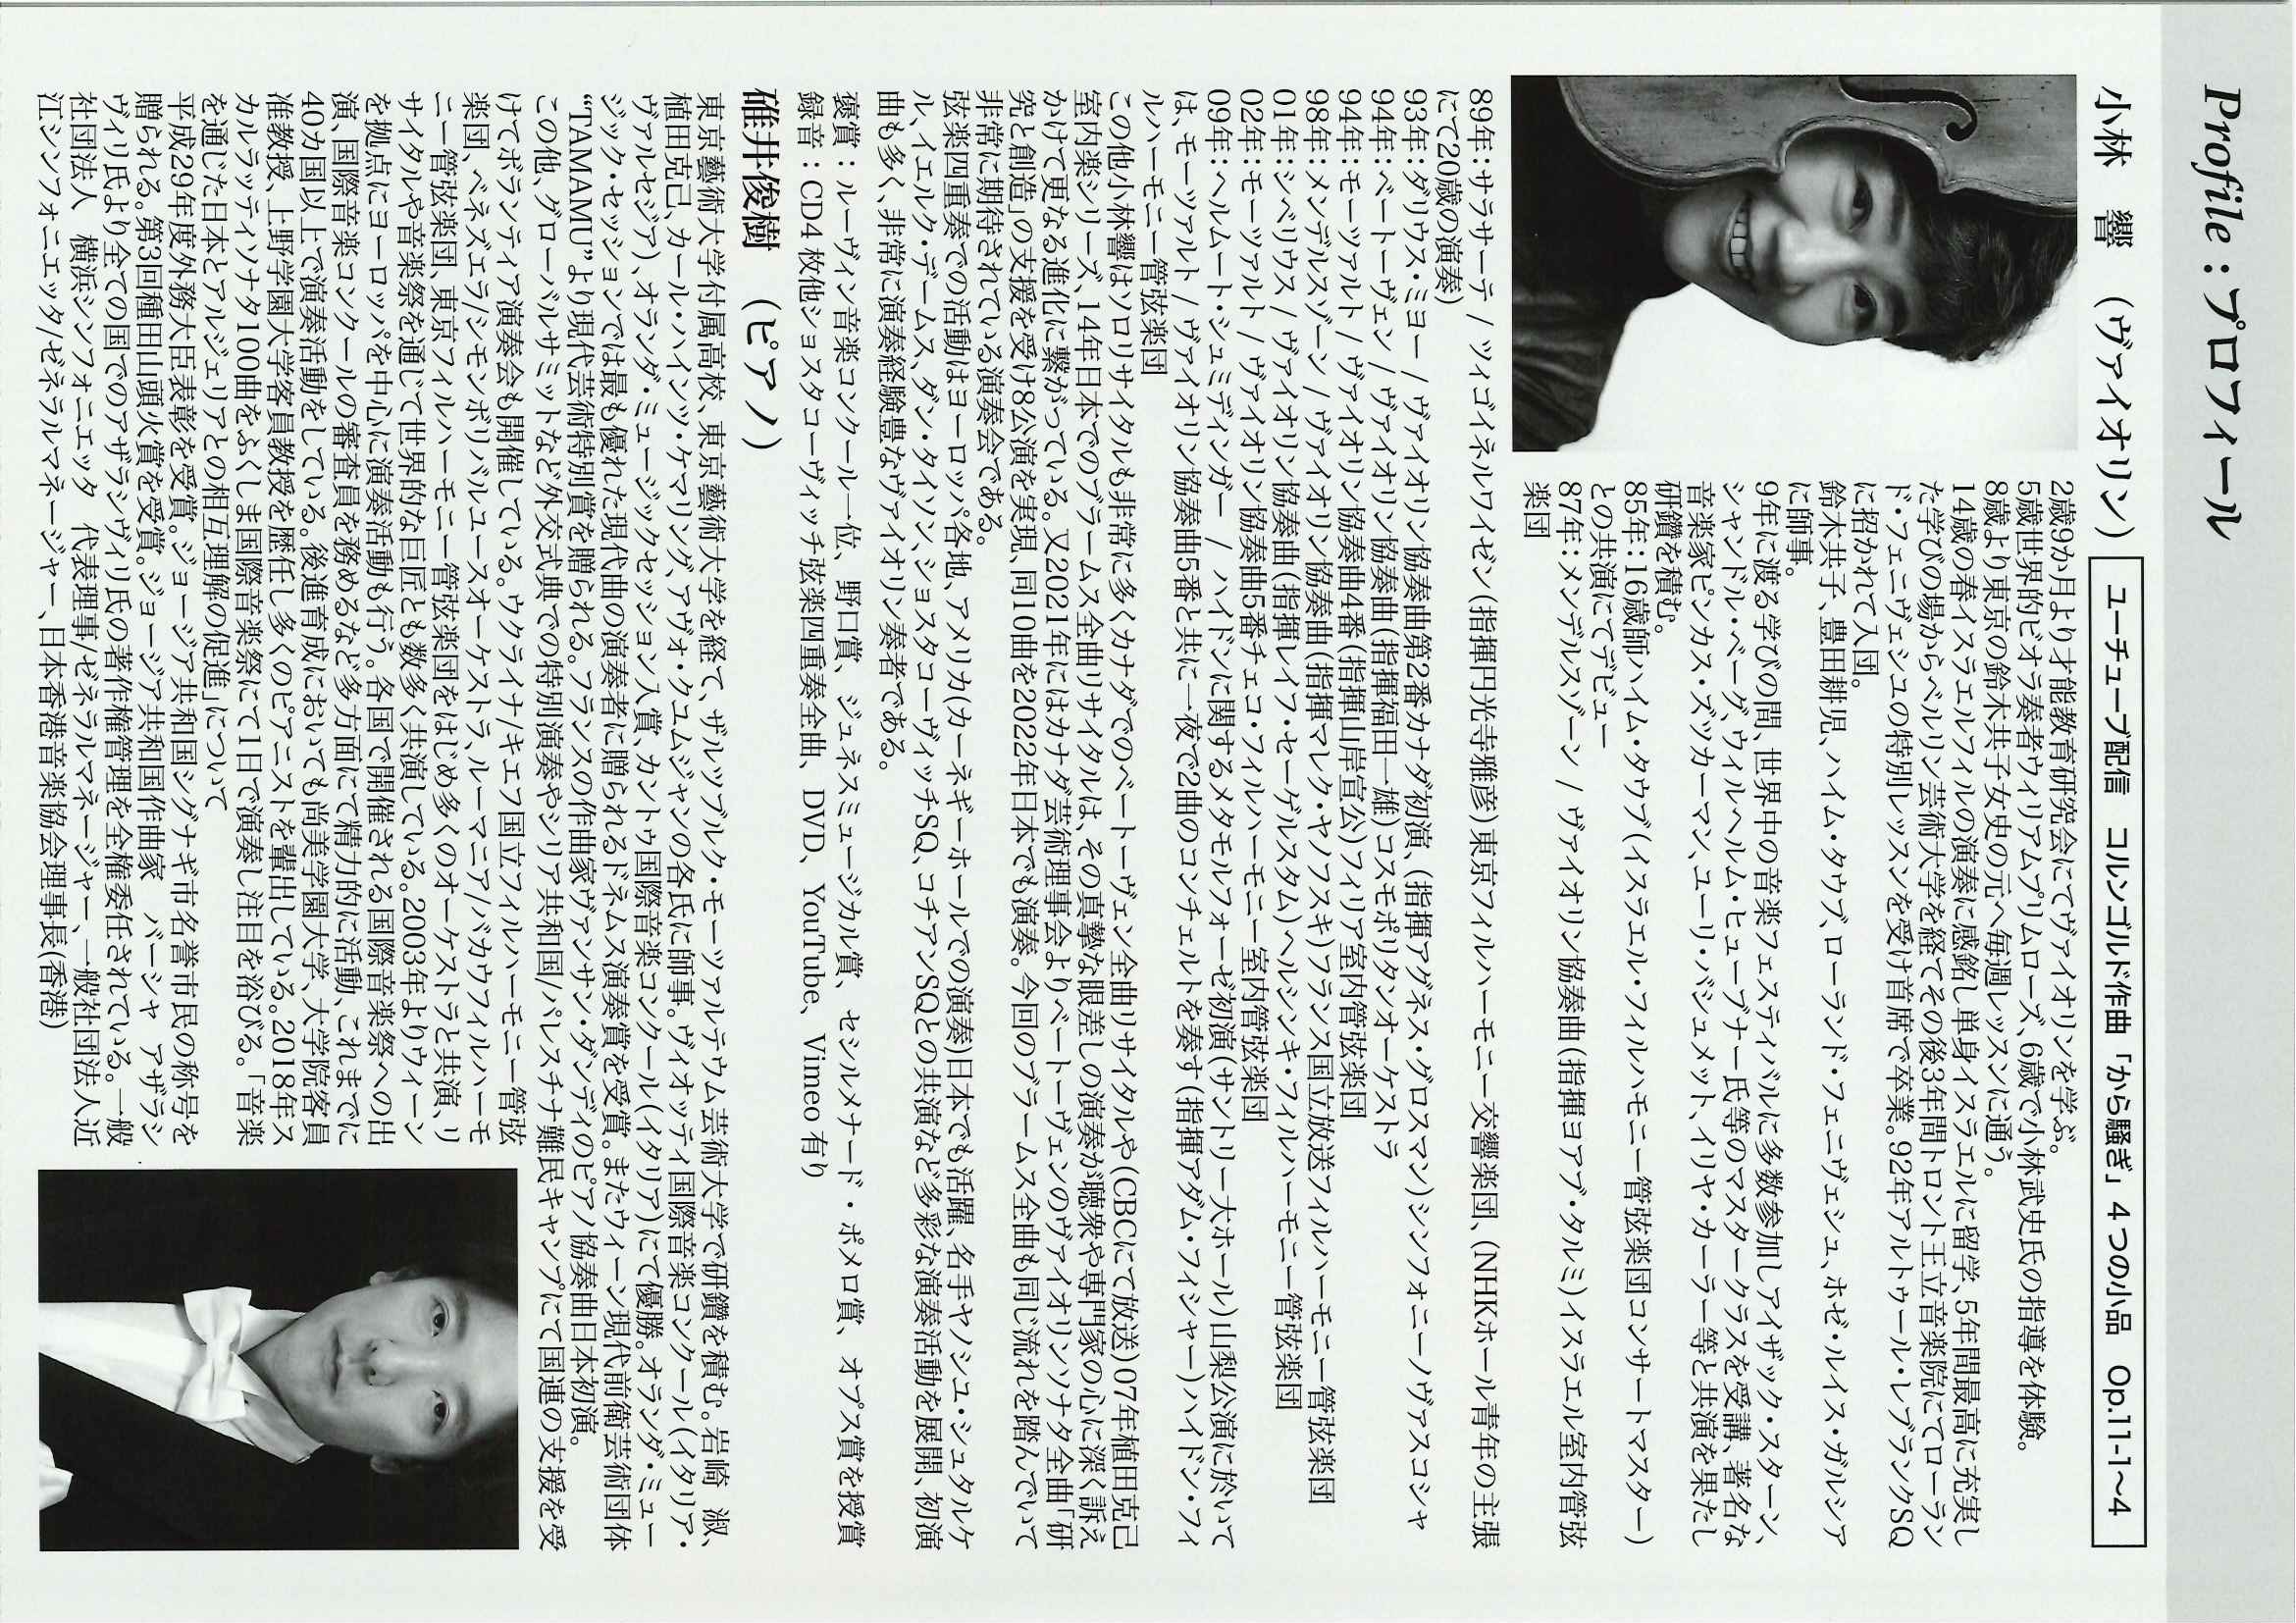 Profile : プロフィール
小林　響　（ヴァイオリン）
ユーチューブ配信　コルンゴルド作曲「から騒ぎ」４つの小品　Op.11-1〜4
2歳9か月より才能教育研究会にてヴァイオリンを学ぶ。
5歳世界的ビオラ奏者ウィリアムプリムローズ、6歳で小林武史氏の指導を体験。
8歳より東京の鈴木共子女史の元へ毎週レッスンに通う。
14歳の春イスラエルフィルの演奏に感銘し単身イスラエルに留学、5年間最高に充実し
た学びの場からベルリン芸術大学を経てその後3年間トロント王立音楽院にてローラン
ド・フェニヴェシュの特別レッスンを受け首席で卒業。92年アルトゥール・レブランクSQ
に招かれて入団。
鈴木共子、豊田耕児、ハイム・タウブ、ローランド・フェニヴェシュ、ホゼ・ルイス・ガルシア
に師事。
9年に渡る学びの間、世界中の音楽フェスティバルに多数参加しアイザック・スターン、
シャンドル・ベーグ、ウィルヘルム・ヒューブナー氏等のマスタークラスを受講、著名な
音楽家ピンカス・ズッカーマン、ユーリ・バシュメット、イリヤ・カーラー等と共演を果たし
研鑽を積む。
85年：16歳師ハイム・タウブ（イスラエル・フィルハモニー管弦楽団コンサートマスター）
との共演にてデビュー
87年：メンデルスゾーン / ヴァイオリン協奏曲（指揮ヨアブ・タルミ）イスラエル室内管弦
楽団
89年：サラサーテ / ツィゴイネルワイゼン（指揮円光寺雅彦）東京フィルハーモニー交響楽団、（NHKホール青年の主張
にて20歳の演奏）
93年：ダリウス・ミヨー / ヴァイオリン協奏曲第2番カナダ初演、（指揮アグネス・グロスマン）シンフォニーノヴァスコシャ
94年：ベートーヴェン / ヴァイオリン協奏曲（指揮福田一雄）コスモポリタンオーケストラ
94年：モーツァルト / ヴァイオリン協奏曲4番（指揮山岸宣公）フィリア室内管弦楽団
98年：メンデルスゾーン / ヴァイオリン協奏曲（指揮マレク・ヤノフスキ）フランス国立放送フィルハーモニー管弦楽団
01年：シベリウス / ヴァイオリン協奏曲（指揮レイフ・セーゲルスタム）ヘルシンキ・フィルハーモニー管弦楽団
02年：モーツァルト / ヴァイオリン協奏曲5番チェコ・フィルハーモニー室内管弦楽団
09年：ヘルムート・シュミディンガー / ハイドンに関するメタモルフォーゼ初演（サントリー大ホール）山梨公演に於いて
は、モーツァルト / ヴァイオリン協奏曲5番と共に一夜で2曲のコンチェルトを奏す（指揮アダム・フィシャー）ハイドン・フィ
ルハーモニー管弦楽団
この他小林響はソロリサイタルも非常に多くカナダでのベートーヴェン全曲リサイタルや（CBCにて放送）07年植田克己
室内楽シリーズ、14年日本でのブラームス全曲リサイタルは、その真摯な眼差しの演奏が聴衆や専門家の心に深く訴え
かけて更なる進化に繋がっている。又2021年にはカナダ芸術理事会よりベートーヴェンのヴァイオリンソナタ全曲「研
究と創造」の支援を受け8公演を実現、同10曲を2022年日本でも演奏。今回のブラームス全曲も同じ流れを踏んでいて
非常に期待されている演奏会である。
弦楽四重奏での活動はヨーロッパ各地、アメリカ（カーネギーホールでの演奏）日本でも活躍、名手ヤノシュ・シュタルケ
ル、イエルク・デームス、ダン・タイソン、ショスタコーヴィッチSQ、コチアンSQとの共演など多彩な演奏活動を展開、初演
曲も多く、非常に演奏経験豊なヴァイオリン奏者である。
褒賞：ルーヴィン音楽コンクール一位、野口賞、ジュネスミュージカル賞、セシルメナード・ポメロ賞、オプス賞を授賞
録音：CD4 枚他ショスタコーヴィッチ弦楽四重奏全曲、DVD、YouTube、Vimeo 有り
碓井俊樹　（ピアノ）
東京藝術大学付属高校、東京藝術大学を経て、ザルツブルク・モーツァルテウム芸術大学で研鑽を積む。岩崎　淑、
植田克己、カール・ハインツ・ケマリング、アヴォ・クユムジャンの各氏に師事。ヴィオッティ国際音楽コンクール（イタリア・
ヴァルセジア）、オランダ・ミュージックセッション入賞、カントゥ国際音楽コンクール（イタリア）にて優勝。オランダ・ミュー
ジック・セッションでは最も優れた現代曲の演奏者に贈られるドネムス演奏賞を受賞。またウィーン現代前衛芸術団体
“TAMAMU”より現代芸術特別賞を贈られる。フランスの作曲家ヴァンサン・ダンディのピアノ協奏曲日本初演。
この他、グローバルサミットなど外交式典での特別演奏やシリア共和国/パレスチナ難民キャンプにて国連の支援を受
けてボランティア演奏会も開催している。ウクライナ/キエフ国立フィルハーモニー管弦
楽団、ベネズエラ/シモンボリバルユースオーケストラ、ルーマニア/バカウフィルハーモ
ニー管弦楽団、東京フィルハーモニー管弦楽団をはじめ多くのオーケストラと共演、リ
サイタルや音楽祭を通じて世界的な巨匠とも数多く共演している。2003年よりウィーン
を拠点にヨーロッパを中心に演奏活動も行う。各国で開催される国際音楽祭への出
演、国際音楽コンクールの審査員を務めるなど多方面にて精力的に活動、これまでに
40カ国以上で演奏活動をしている。後進育成においても尚美学園大学、大学院客員
准教授、上野学園大学客員教授を歴任し多くのピアニストを輩出している。2018年ス
カルラッティソナタ100曲をふくしま国際音楽祭にて1日で演奏し注目を浴びる。「音楽
を通じた日本とアルジェリアとの相互理解の促進」について
平成29年度外務大臣表彰を受賞。ジョージア共和国シグナギ市名誉市民の称号を
贈られる。第3回種田山頭火賞を受賞。ジョージア共和国作曲家　バーシャ　アザラシ
ヴィリ氏より全ての国でのアザラシヴィリ氏の著作権管理を全権委任されている。一般
社団法人　横浜シンフォニエッタ　代表理事/ゼネラルマネージャー、一般社団法人近
江シンフォニエッタ/ゼネラルマネージャー、日本香港音楽協会理事長（香港）